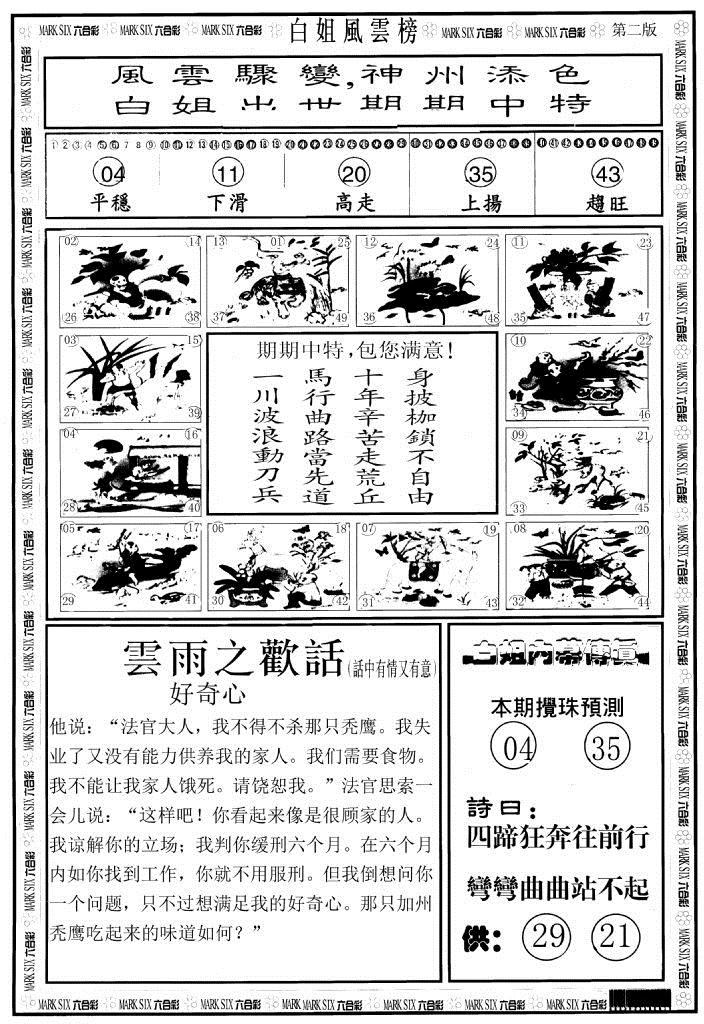 MARK SIX 六合彩 MARK SIX 六合彩 MARK SIX 六合彩 白姐風雲榜 MARK SIX 六合彩 MARK SIX 六合彩 第二版
風雲驟變,神州添色
白姐出世期期中特
04 11 20 35 43
平穩 下滑 高走 上揚 趨旺
02 14 26 38
13 01 25 37 49
12 24 36 48
11 23 35 47
03 15 27 39
10 22 34 46
04 16 28 40
09 21 33 45
05 17 29 41
06 18 30 42
07 19 31 43
08 20 32 44
期期中特,包您满意!
身披枷鎖不自由
十年辛苦走荒丘
馬行曲路當先道
一川波浪動刀兵
雲雨之歡話(話中有情又有意)
好奇心
他说：“法官大人，我不得不杀那只秃鹰。我失
业了又没有能力供养我的家人。我们需要食物。
我不能让我家人饿死。请饶恕我。”法官思索一
会儿说：“这样吧！你看起来像是很顾家的人。
我谅解你的立场；我判你缓刑六个月。在六个月
内如你找到工作，你就不用服刑。但我倒想问你
一个问题，只不过想满足我的好奇心。那只加州
秃鹰吃起来的味道如何？”
白姐内幕傳真
本期攪珠預測
04 35
詩曰：
四蹄狂奔往前行
彎彎曲曲站不起
供： 29 21
MARK SIX 六合彩 MARK SIX 六合彩 MARK SIX 六合彩 MARK SIX 六合彩 MARK SIX 六合彩 MARK SIX 六合彩 MARK SIX 六合彩